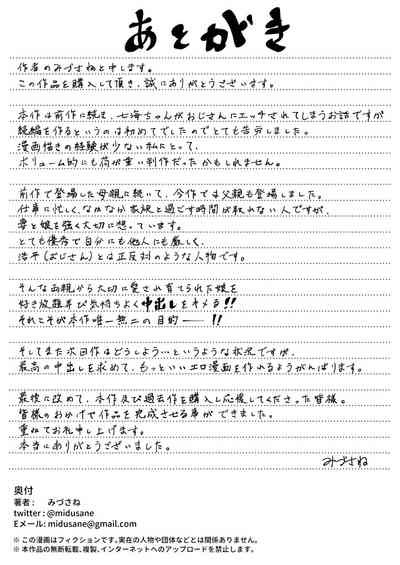 あとがき
作者のみづさねと申します。
この作品を購入して頂き、誠にありがとうございます。
本作は前作に続き、七海ちゃんがおじさんにエッチされてしまうお話ですが
続編を作るというのは初めてでしたのでとても苦労しました。
漫画描きの経験状少ない私にとって、
ボリューム的にも荷が重い制作だったかもしれません。
前作で登場した母親に続いて、今作では父親も登場しました。
仕事に忙しく、なかなか家族と過ごす時間が取れない人ですが、
妻と娘を強く大切に想っています。
とても優秀で自分にも他人にも厳しく、
浩平(おじさん)とは正反対のような人物です。
そんな両親から大切に愛され育てられた娘を
好き放題弄び気持ちよく中出しをキメる!!
それこそが本作唯一無二の目的――!!
そしてまた次回作はどうしよう…というような状況ですが、
最高の中出しを求めて、もっといいエロ漫画を作れるようがんばります。
最後に改めて、本作及び過去作を購入し応援してくださった皆様。
皆様のおかげで作品を完成させる事ができました。
重ねてお礼申し上げます。
本当にありがとうございました。
みづさね
奥付
著者: みづさね
twitter : @midusane
Eメール: midusane@gmail.com
※ この漫画はフィクションです。実在の人物や団体などとは関係ありません。
※ 本作品の無断転載、複製、インターネットへのアップロードを禁止します。